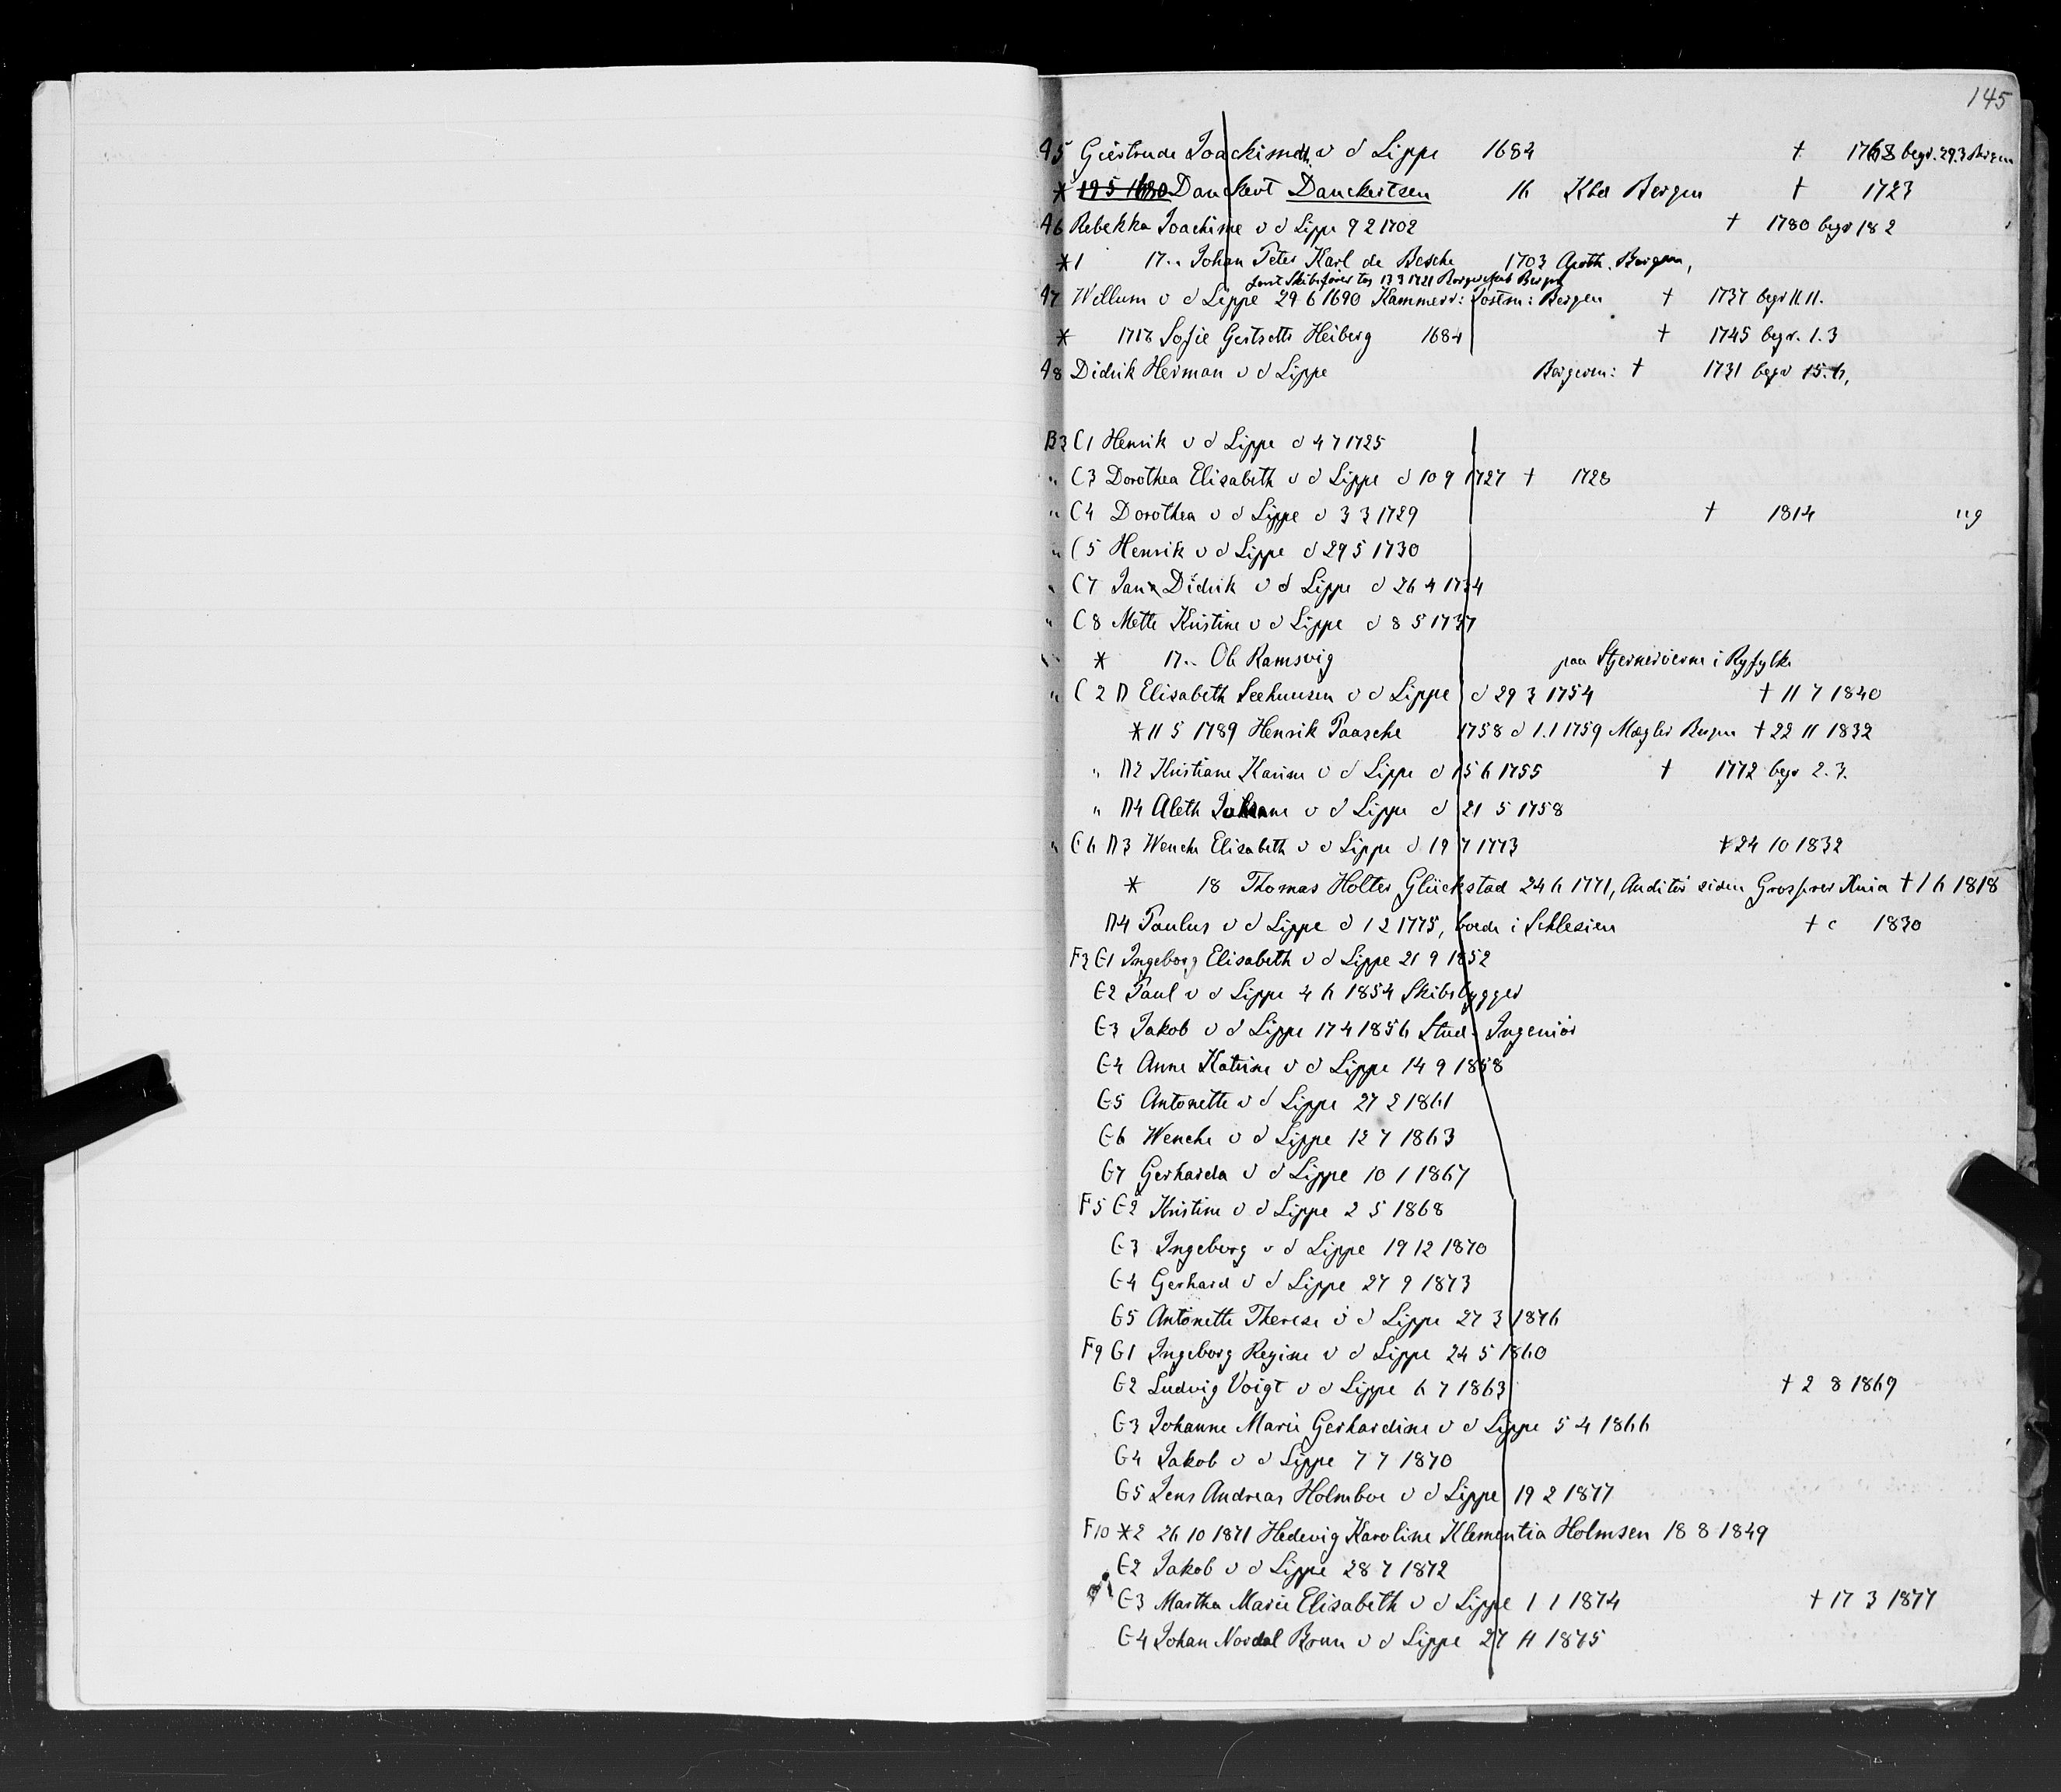 145
A5 Giertrude Joachimdtr. v d Lippe 1684 † 1768 begr. 29.3 Bergen
* 19 5 1680 Danckert Danckertsen 16 Kbd Bergen † 1723
A6 Rebekka Joachime v d Lippe 9 2 1702 † 1780 begr 18 2
*1 17.. Johan Peter Karl de Besche 1703 Apoth. Bergen,
først Skibsfører tog 13 3 1721 Borgerskab Bergen
A7 Willum v d Lippe 29 6 1690 Kammerr: Postm: Bergen † 1737 begr 11.11.
* 1717 Sofie Gertsdtr Heiberg 1684 † 1745 begr. 1.3
A8 Didrik Herman v d Lippe Borgerm: † 1731 begr 15.6,
B3 C1 Henrik v d Lippe d 4 7 1725
" C3 Dorothea Elisabeth v d Lippe d 10 9 1727 † 1728
" C4 Dorothea v d Lippe d 3 3 1729 † 1814 ug
" C5 Henrik v d Lippe d 29 5 1730
" C7 Jan Didrik v d Lippe d 26 4 1734
" C8 Mette Kristine v d Lippe d 8 5 1737
" * 17.. Ole Ramsvig paa Stjernerøerne i Ryfylke
" C2 D Elisabeth Seehuusen v d Lippe d 29 3 1754 † 11 7 1840
* 11 5 1789 Henrik Paasche 1758 d 1.1 1759 Mægler Bergen † 22 11 1832
" D2 Kristiane Karine v d Lippe d 15 6 1755 † 1772 begr 2.3.
" D4 Aleth Johanne v d Lippe d 21 5 1758
" C6 D3 Wenche Elisabeth v d Lippe d 19 7 1773 † 24 10 1832
* 18 Thomas Holter Glückstad 24 6 1771, Auditør siden Grosserer Xnia † 1 6 1818
D4 Paulus v d Lippe d 1 2 1775, boede i Schlesien † c 1830
F3 G1 Ingeborg Elisabeth v d Lippe 21 9 1852
G2 Paul v d Lippe 4 6 1854 Skibsbygger
G3 Jakob v d Lippe 17 4 1856 Stud. Ingeniør
G4 Anne Katrine v d Lippe 14 9 1858
G5 Antonette v d Lippe 27 2 1861
G6 Wenche v d Lippe 12 7 1863
G7 Gerharda v d Lippe 10 1 1867
F5 G2 Kristine v d Lippe 2 5 1868
G3 Ingeborg v d Lippe 19 12 1870
G4 Gerhard v d Lippe 27 9 1873
G5 Antonette Therese v d Lippe 27 3 1876
F9 G1 Ingeborg Regine v d Lippe 24 5 1860
G2 Ludvig Voigt v d Lippe 6 7 1863 † 2 8 1869
G3 Johanne Marie Gerhardine v d Lippe 5 4 1866
G4 Jakob v d Lippe 7 7 1870
G5 Jens Andreas Holmboe v d Lippe 19 2 1877
F10 *2 26 10 1871 Hedevig Karoline Klementia Holmsen 18 8 1849
G2 Jakob v d Lippe 28 7 1872
G3 Martha Marie Elisabeth v d Lippe 1 1 1874 † 17 3 1877
G4 Johan Nordal Brun v d Lippe 27 11 1875